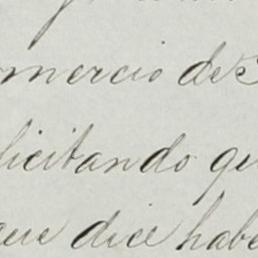 omercio de
licitando qu
que dice habe